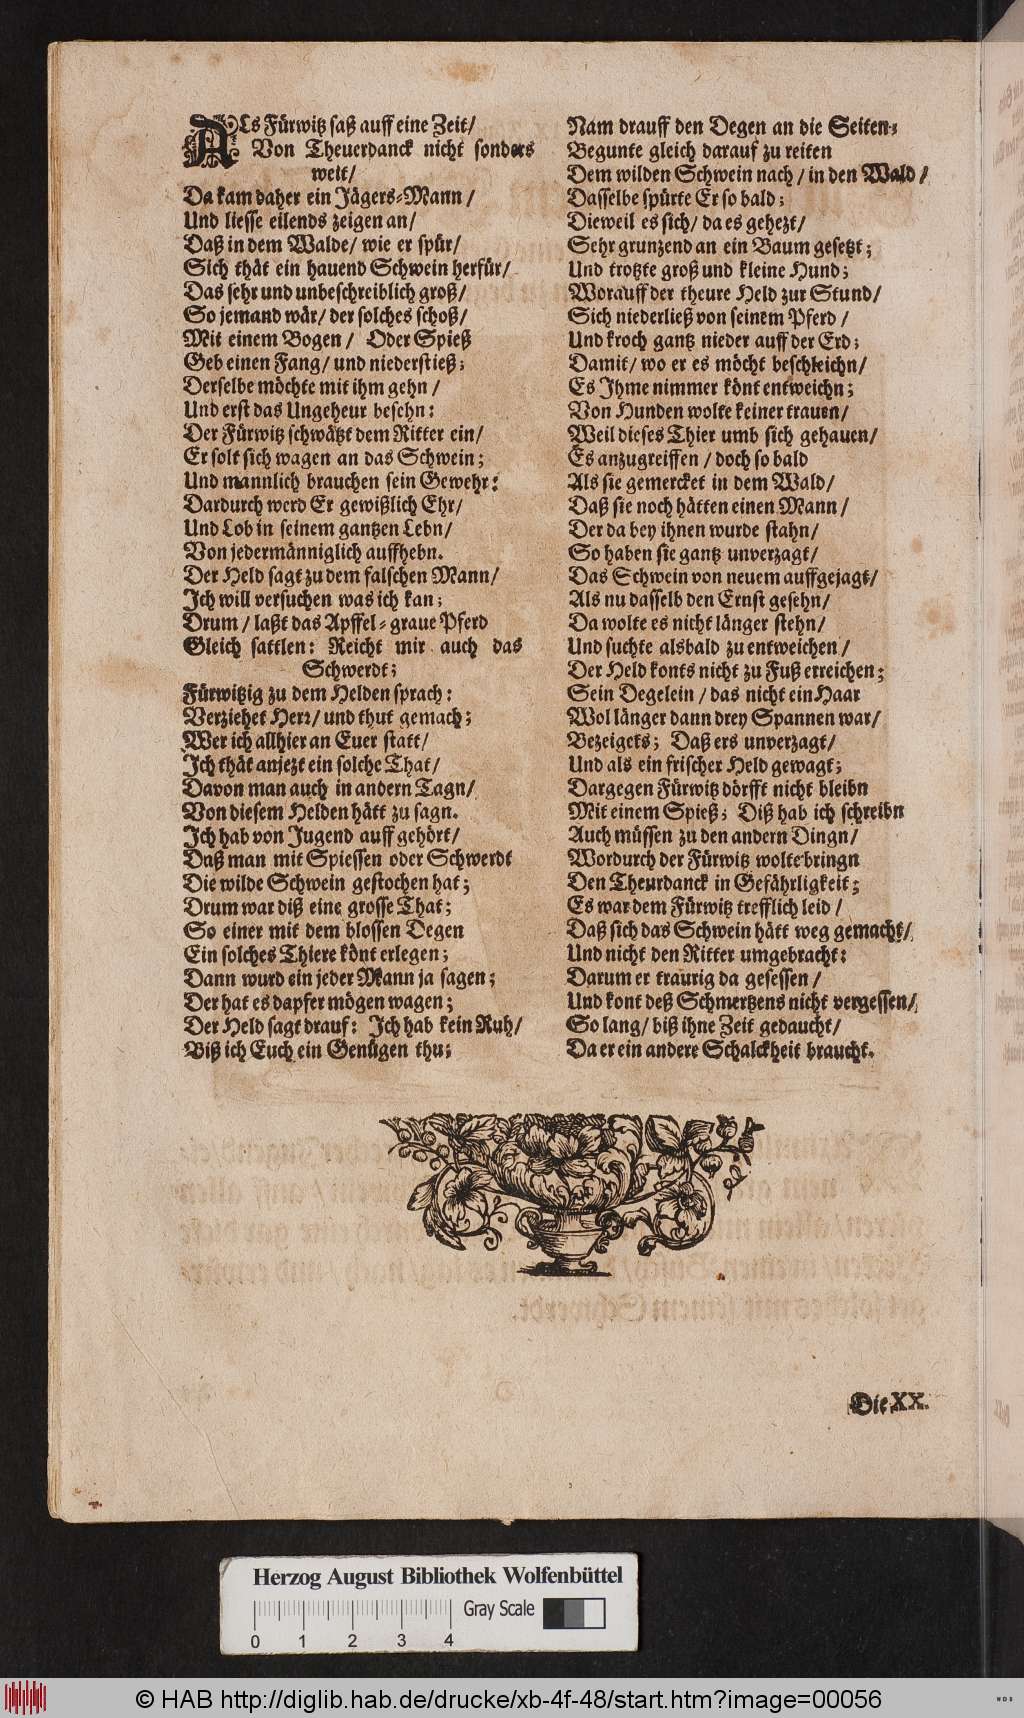 ALs Fürwitz saß auff eine Zeit/
Von Theuerdanck nicht sonders
weit/
Da kam daher ein Jägers-Mann/
Und liesse eilends zeigen an/
Daß in dem Walde/ wie er spür/
Sich thät ein hauend Schwein herfür/
Das sehr und unbeschreiblich groß/
So jemand wär/ der solches schoß/
Mit einem Bogen/ Oder Spieß
Geb einen Fang/ und niederstieß;
Derselbe möchte mit ihm gehn/
Und erst das Ungeheur besehn:
Der Fürwitz schwätzt dem Ritter ein/
Er solt sich wagen an das Schwein;
Und mannlich brauchen sein Gewehr:
Dardurch werd Er gewißlich Ehr/
Und Lob in seinem gantzen Lebn/
Von jedermänniglich auffhebn.
Der Held sagt zu dem falschen Mann/
Ich will versuchen was ich kan;
Drum/ laßt das Apffel-graue Pferd
Gleich sattlen: Reicht mir auch das
Schwerdt;
Fürwitzig zu dem Helden sprach:
Verziehet Herr/ und thut gemach;
Wer ich allhier an Euer statt/
Ich thät anjezt ein solche That/
Davon man auch in andern Tagn/
Von diesem Helden hätt zu sagn.
Ich hab von Jugend auff gehört/
Daß man mit Spiessen oder Schwerdt
Die wilde Schwein gestochen hat;
Drum war diß eine grosse That;
So einer mit dem blossen Degen
Ein solches Thiere könt erlegen;
Dann wurd ein jeder Mann ja sagen;
Der hat es dapfer mögen wagen;
Der Held sagt drauf: Ich hab kein Ruh/
Biß ich Euch ein Genügen thu;
Nam drauff den Degen an die Seiten;
Begunte gleich darauf zu reiten
Dem wilden Schwein nach/ in den Wald/
Dasselbe spürte Er so bald;
Dieweil es sich/ da es gehezt/
Sehr grunzend an ein Baum gesetzt;
Und trotzte groß und kleine Hund;
Worauff der theure Held zur Stund/
Sich niederließ von seinem Pferd/
Und kroch gantz nieder auff der Erd;
Damit/ wo er es möcht beschleichn/
Es Ihme nimmer könt entweichn;
Von Hunden wolte keiner trauen/
Weil dieses Thier umb sich gehauen/
Es anzugreiffen/ doch so bald
Als sie gemercket in dem Wald/
Daß sie noch hätten einen Mann/
Der da bey ihnen wurde stahn/
So haben sie gantz unverzagt/
Das Schwein von neuem auffgejagt/
Als nu dasselb den Ernst gesehn/
Da wolte es nicht länger stehn/
Und suchte alsbald zu entweichen/
Der Held konts nicht zu Fuß erreichen;
Sein Degelein/ das nicht ein Haar
Wol länger dann drey Spannen war/
Bezeigets; Daß ers unverzagt/
Und als ein frischer Held gewagt;
Dargegen Fürwitz dörfft nicht bleibn
Mit einem Spieß; Diß hab ich schreibn
Auch müssen zu den andern Dingn/
Wordurch der Fürwitz wolte bringn
Den Theurdanck in Gefährligkeit;
Es war dem Fürwitz trefflich leid/
Daß sich das Schwein hätt weg gemacht/
Und nicht den Ritter umgebracht:
Darum er traurig da gesessen/
Und kont deß Schmertzens nicht vergessen/
So lang/ biß ihne Zeit gedaucht/
Da er ein andere Schalckheit braucht.
Die XX.
Herzog August Bibliothek Wolfenbüttel
Gray Scale
0 1 2 3 4
© HAB http://diglib.hab.de/drucke/xb-4f-48/start.htm?image=00056